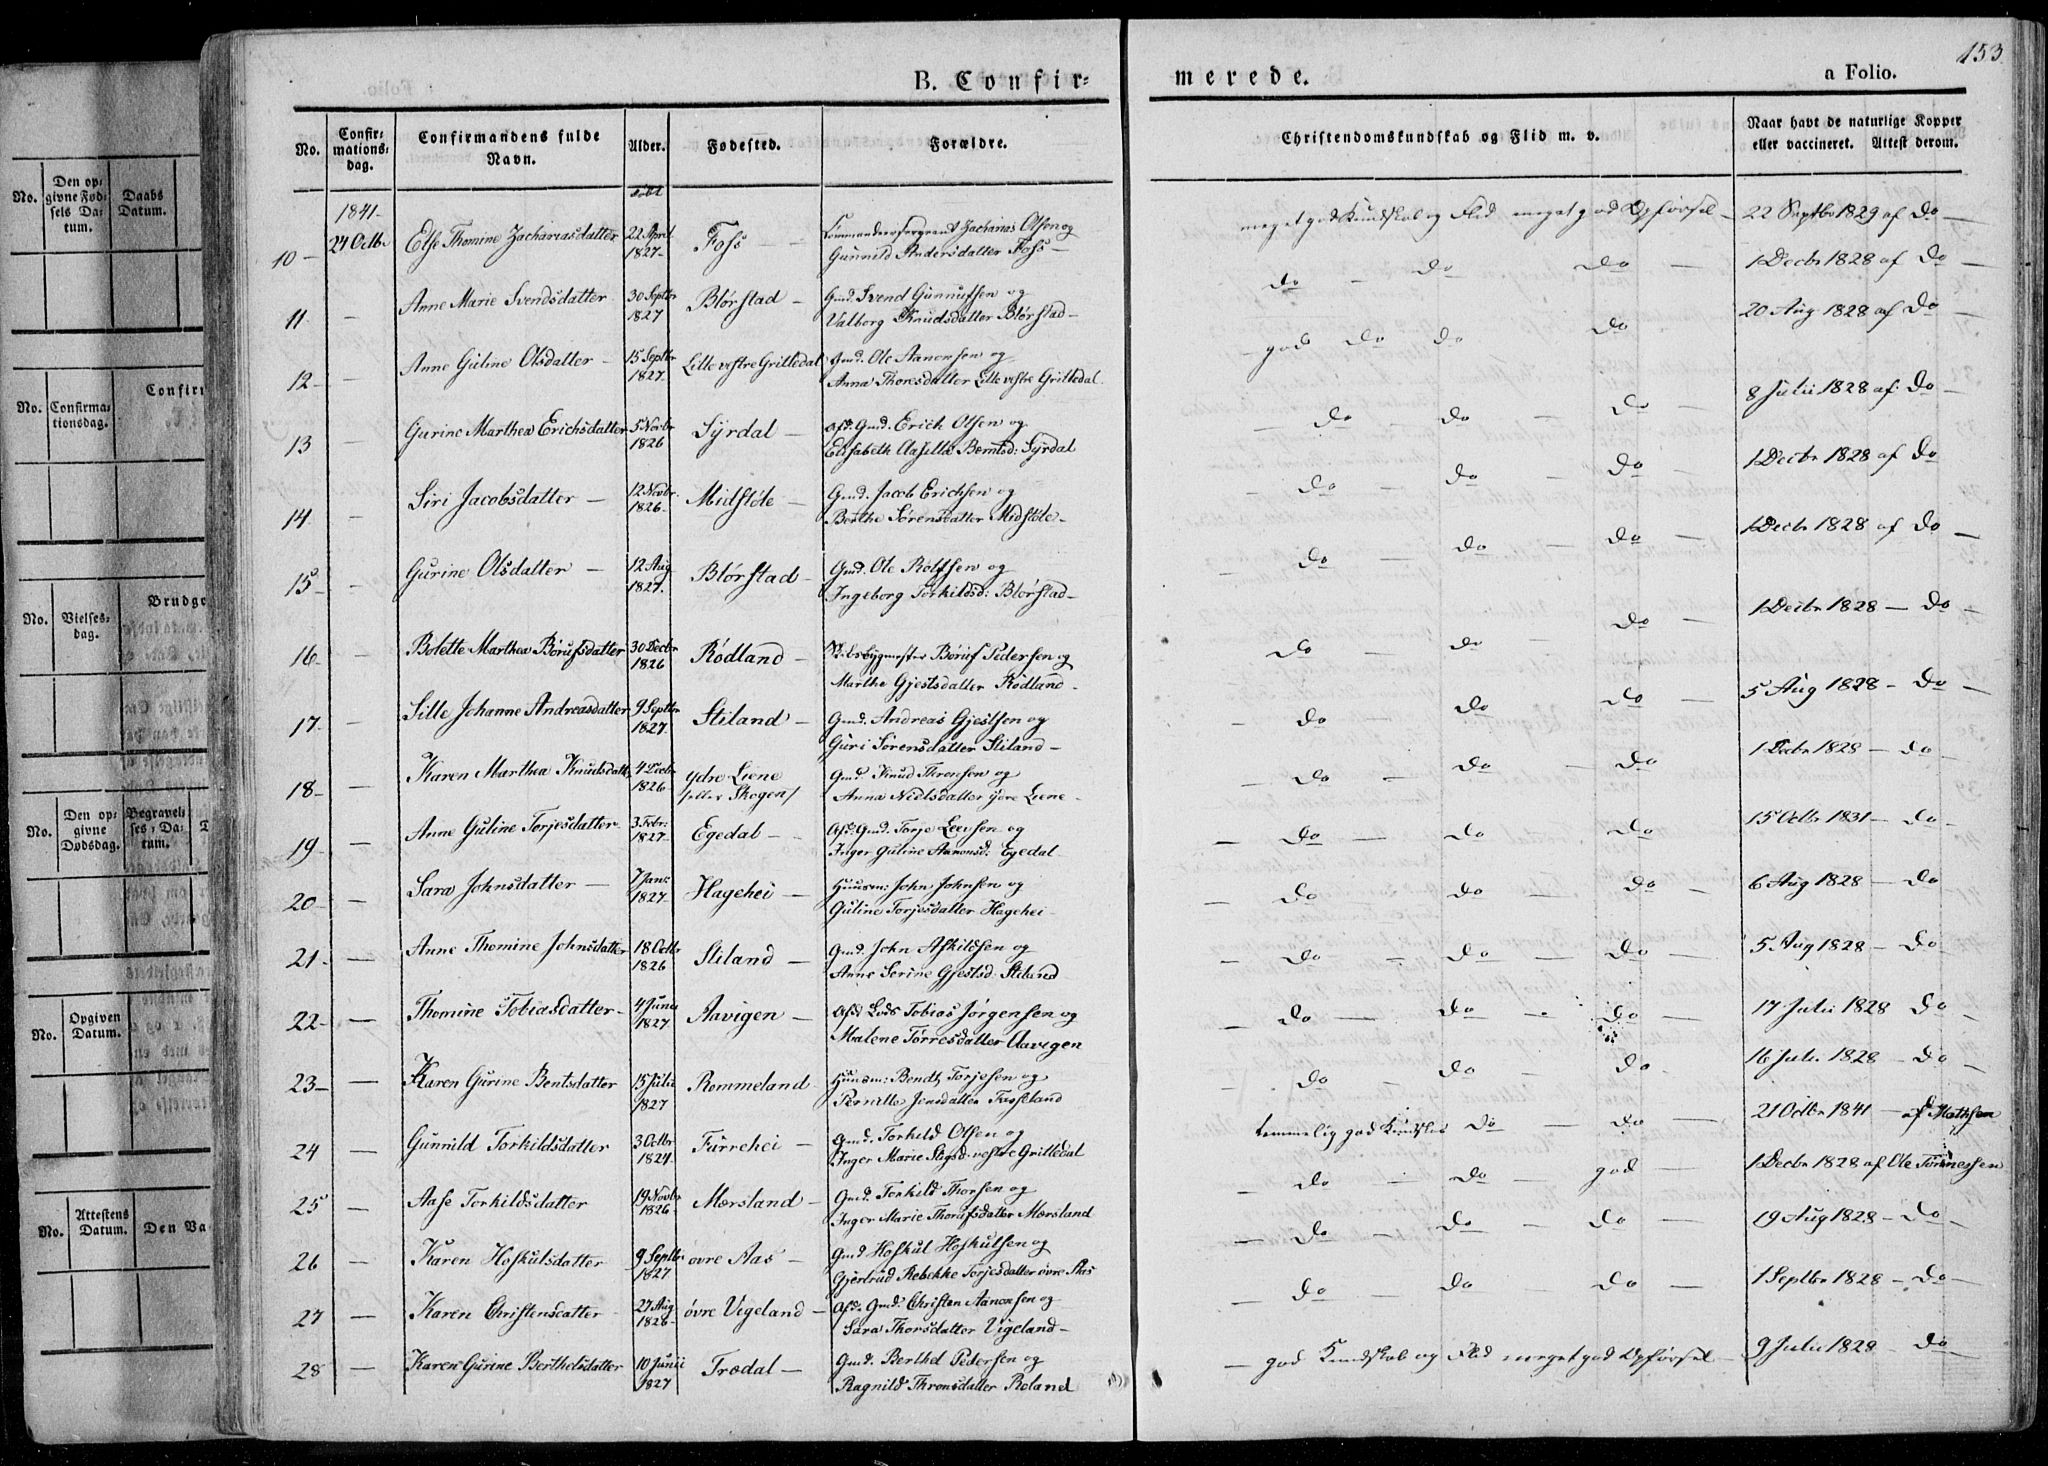 153.
B. Confirmerede. a Folio.
No. Confirmationsdag. Confirmandens fulde Navn. Alder. Fødested. Forældre. Christendomskundskab og Flid m. v. Naar havt de naturlige Kopper eller vaccineret. Attest derom.
døbt
1841.
10 - 24 Octbr Else Thomine Zachariasdatter 22 April 1827 - Foss - Zacharias Olsen og Gunnild Andersdatter Foss - meget god Kundskab og Flid meget god Opførsel - 22 Septbr 1829 af Do -
11. - Anne Marie Svendsdatter 30 Septbr 1827 Blørstad - Gmd. Svend Gunnufsen og Valborg Knudsdatter Blørstad - Do - Do Do - 1 Decbr 1828 af Do -
12 - - Anne Guline Olsdatter - 15 Septbr 1827. Lille vestre Grittedal Gmd. Ole Aanonsen og Anna Thoresdatter Lille vestre Grittedal. - god Do Do Do 20 Aug 1828 af Do -
13 - Gurine Marthea Erichsdatter 5 Novbr 1826 Syrdal - Afd. Gmd. Erich Olsen og Elisabeth Aasille Berntsd: Syrdal - Do - Do - Do - 8 Julii 1828 af Do -
14. - Siri Jacobsdatter - 12 Novbr. 1826 - Midstøle - Gmd. Jacob Erichsen og Berthe Sørensdatter Midstøle - - Do - Do - Do 1 Decbr 1828 af Do
15 - - Gurine Olsdatter - 12 Aug 1827. Blørstad - Gmd. Ole Rolfsen og Ingeborg Torkildsd: Blørstad - - Do - Do - Do - 1 Decbr 1828 af Do -
16 - - Bolette Marthea Børufsdatter 30 Decbr 1826 Rødland - Børuf Pedersen og Marthe Gjestsdatter Rødland - Do - Do Do - 1 Decbr 1828 - Do -
17 - - Sille Johanne Andreasdatter 9 Septbr 1827. Stiland - Gmd. Andreas Gjestsen og Guri Sørensdatter Stiland - - Do - Do - Do - 5 Aug 1828 - Do -
18 - - Karen Marthea Knudsdatt 4 Decbr 1826 - Ydre Liene /eller Skogen/ Gmd. Knud Thronsen og Anna Nielsdatter Ydre Liene - - Do - Do - Do 1 Decbr 1828 - Do -
19 - - Anne Guline Torjesdatter - 3 Febr: 1827 - Egedal - Afd. Gmd. Torje Leevsen og Inger Guline Aanonsd: Egedal - - Do - Do - Do 15 Octbr 1831 - Do -
20 - - Sara Johnsdatter - 7 Janr: 1827 Hagehei - Huusm: John Johnsen og Guline Torjesdatter Hagehei - - Do - Do - Do - 6 Aug 1828 - Do
21 - - Anne Thomine Johnsdatter 18 Octbr 1826 Stiland - Gmd. John Askildsen og Anne Serine Gjestsd. Stiland - Do - Do - Do - 5 Aug 1828 - Do -
22 - - Thomine Tobiasdatter - 4 Junii 1827 Aavigen - Afd Lods Tobias Jørgensen og Malene Torresdatter Aavigen - Do - Do - Do - 17 Julii 1828 Do -
23 - - Karen Gurine Bentsdatter 15 Julii 1827 Rommeland - Huusm: Bendt Torjesen og Pernille Jensdatter - Do - Do - Do 16 Juli 1828 - Do -
24 - Gunnild Torkildsdatter 3 Octbr 1824 Furrehei - Gmd. Torkild Olsen og Inger Marie Stigsd. vestre Grittedal temmelig god Kundskab Do - Do - 21 Octbr 1841 - af
25 - Aase Torkildsdatter 19 Novbr 1826 - Mærsland - Gmd. Torkild Thorsen og Inger Marie Thorufsdatter Mærsland - Do - Do - god - 1 Decbr 1828 af Ole Tørnnessen
26 - Karen Hofkulsdatter 9 Septbr 1827 øvre Aas - Gmd Hofkul Hofkulsen og Gjertrud Rebekke Torjesdatter øvre Aas - Do - Do - Do - 19 Aug 1828 - Do -
27 - Karen Christensdatter - 27 Aug 1826 - øvre Vigeland - Afd. Gmd: Christen Aanonsen og Sara Thorsdatter Vigeland - - Do - Do - Do - 1 Septbr 1828 - Do -
28 - Karen Gurine Berthelsdatter 10 Junii 1827 Trædal - Gmd. Berthel Pedersen og Ragnild Thronsdatter Røland - god Kundskab og Flid meget god Opførsel - 9 Julii 1828 - Do
No. Den opgivne Fødsels Datum. Daabs Datum.
No. Confirmationsdag. Confir
No. Vielsesdag. Brudge
No. Den opgivne Dødsdag. Begravelses-Datum.
No. Opgiven Datum.
No. Attestens Datum. Den Va